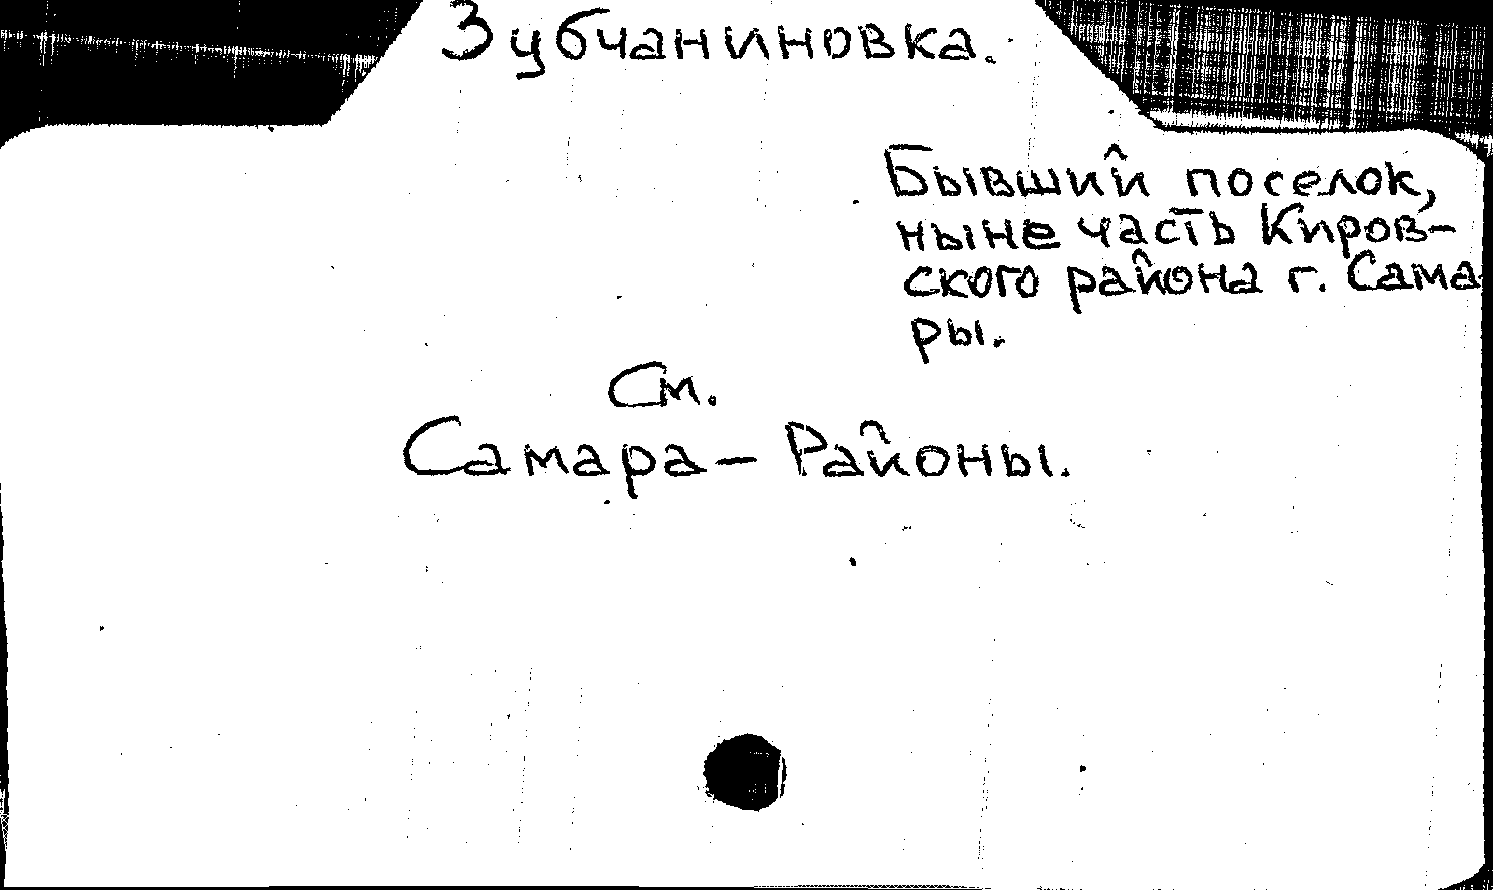 Зубчаниновка.
Бывший поселок,
ныне часть Киров-
ского района г. Сама-
ры.
См.
Самара – Районы.